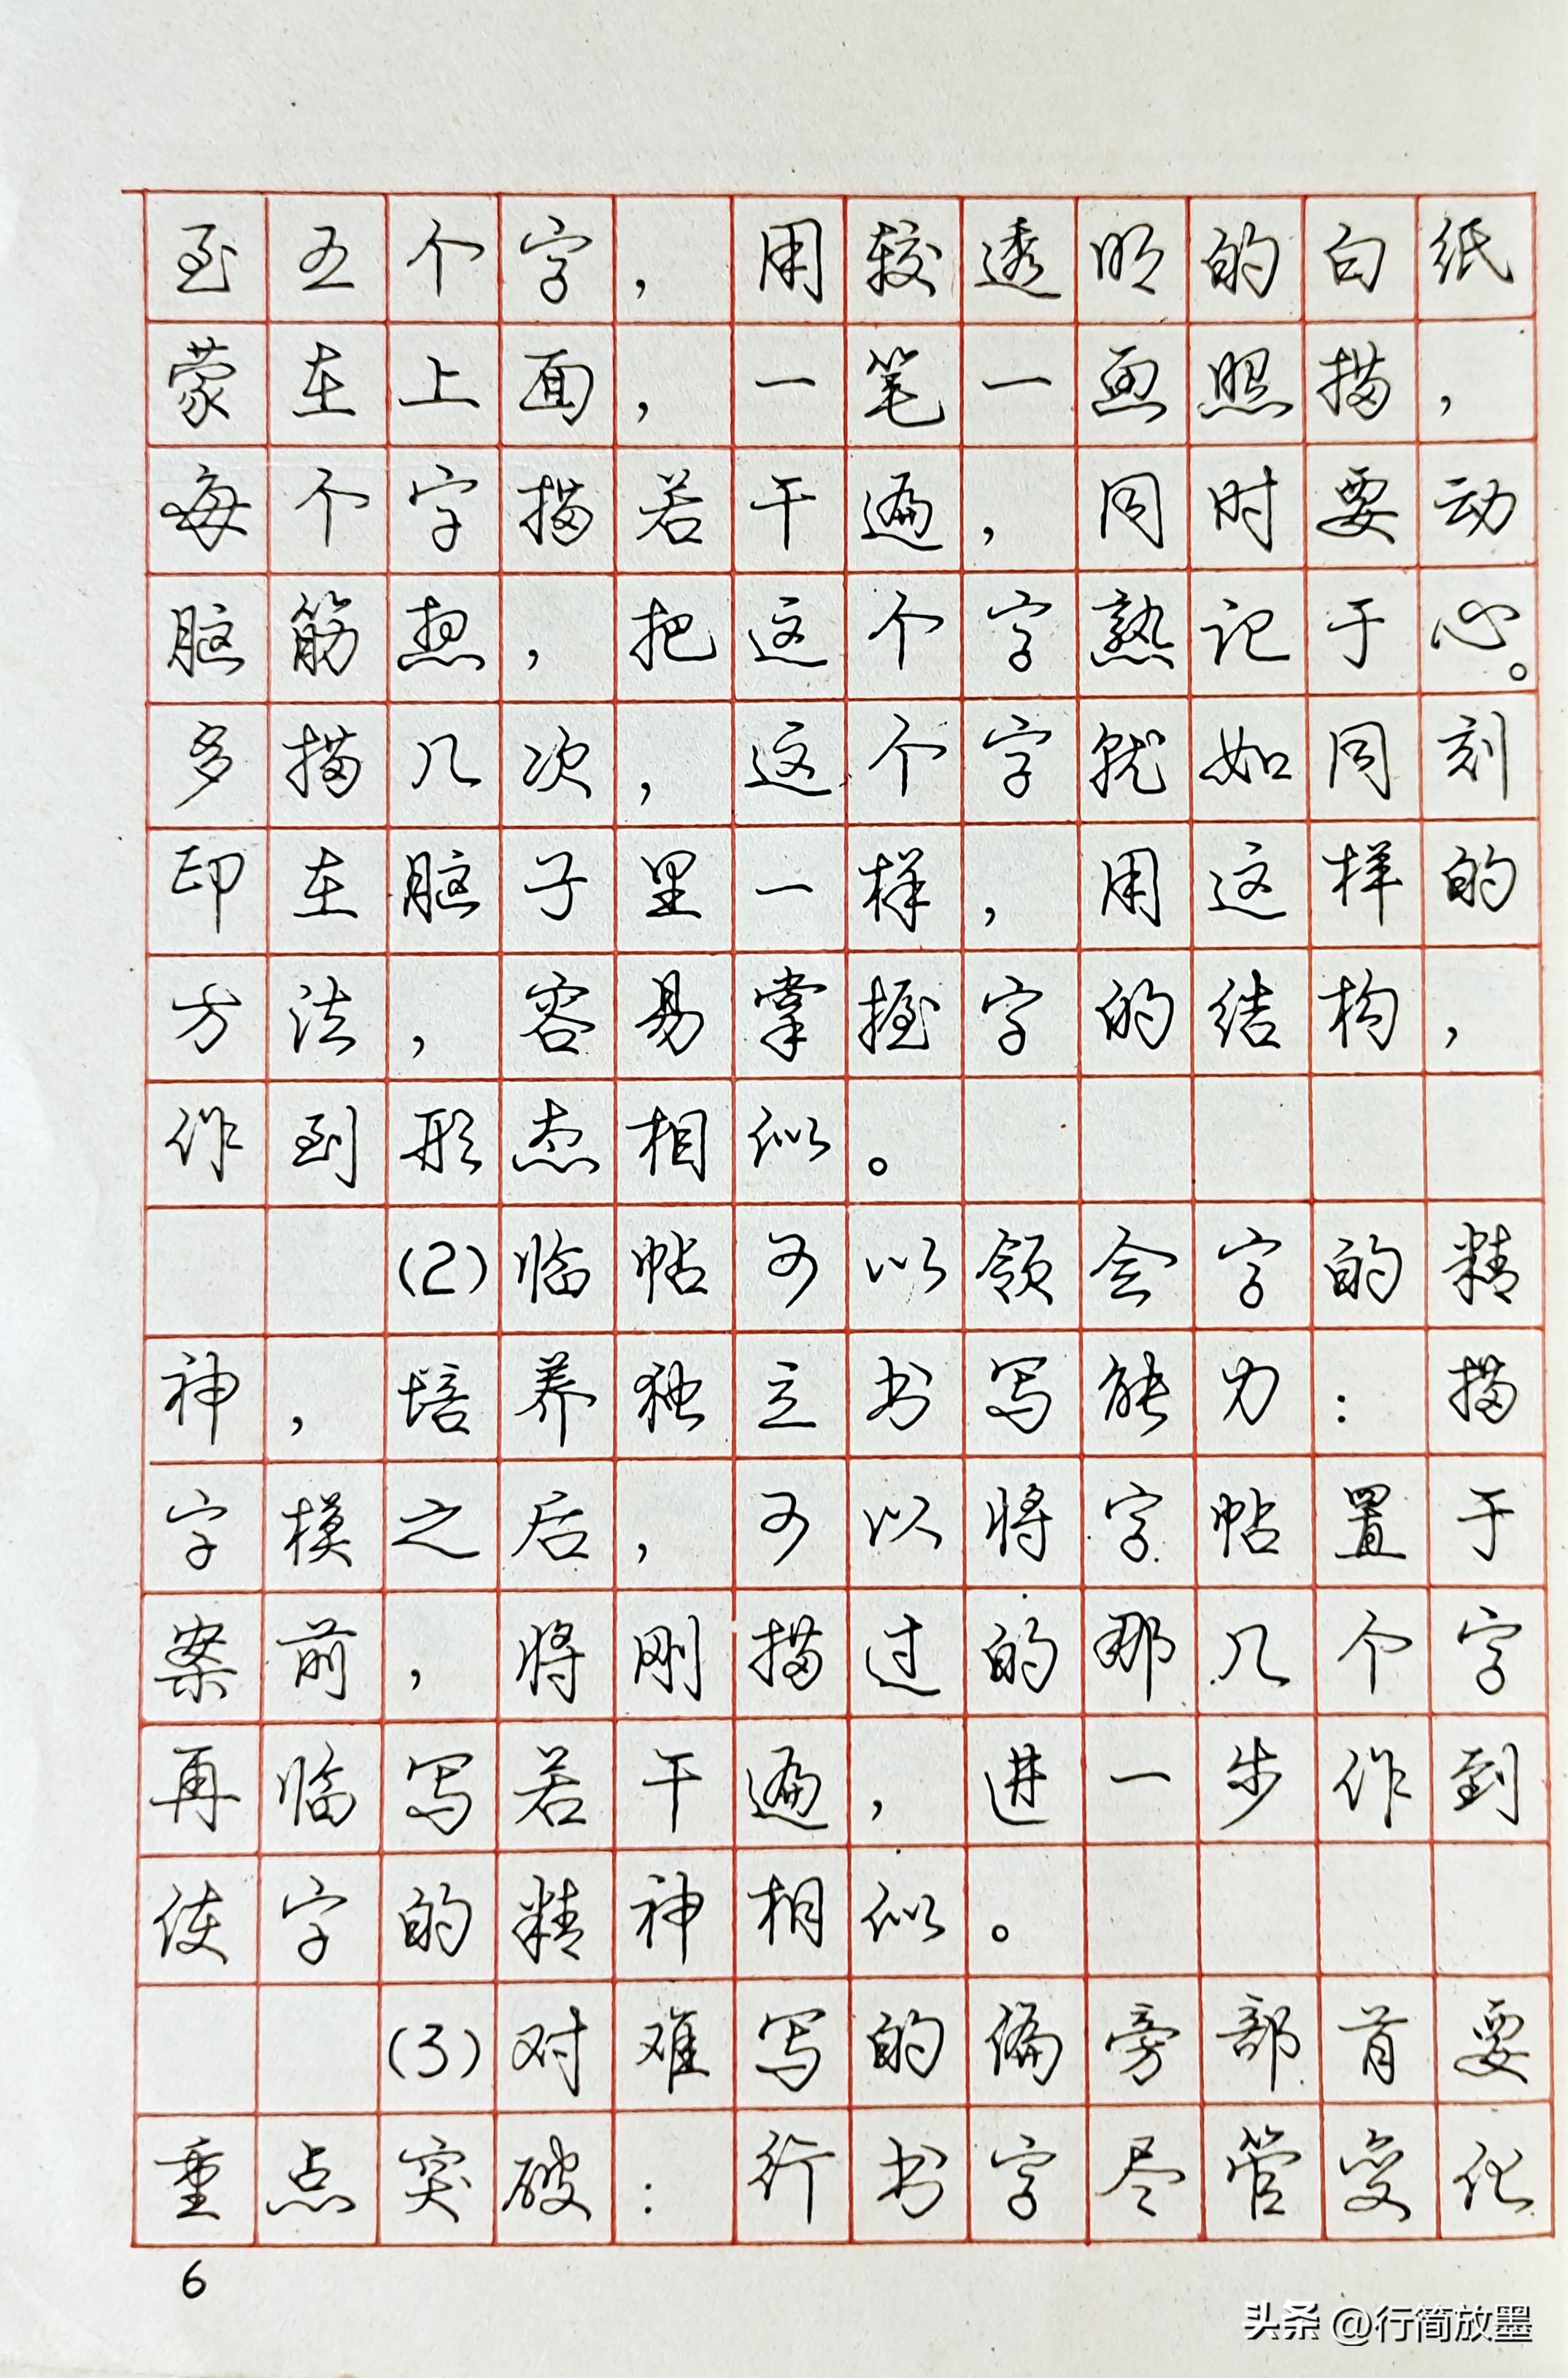 至五个字，用较透明的白纸
蒙在上面，一笔一画照描，
每个字描若干遍，同时要动
脑筋想，把这个字熟记于心。
多描几次，这个字就如同刻
印在脑子里一样，用这样的
方法，容易掌握字的结构，
作到形态相似。
(2)临帖可以领会字的精
神，培养独立书写能力：描
字模之后，可以将字帖置于
案前，将刚描过的那几个字
再临写若干遍，进一步作到
使字的精神相似。
(3)对难写的偏旁部首要
重点突破：行书字尽管变化
6
头条 @行简放墨